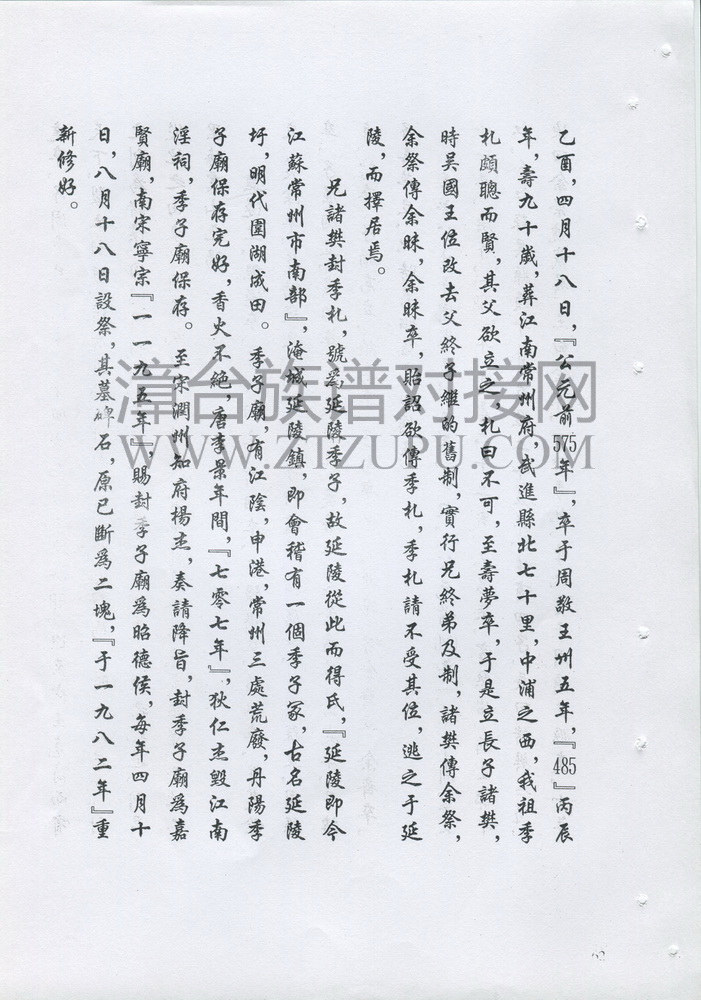 乙酉，四月十八日，『公元前575年』，卒于周敬王卅五年，『485』丙辰
年，壽九十歲，葬江南常州府，武進縣北七十里，申浦之西，我祖季
札頗聰而賢，其父欲立之，札曰不可，至壽夢卒，于是立長子諸樊，
時吳國王位改去父終子繼的舊制，實行兄終弟及制，諸樊傳余祭，
余祭傳余昧，余昧卒，貽詔欲傳季札，季札請不受其位，逃之于延
陵，而擇居焉。
兄諸樊封季札，號爲延陵季子，故延陵從此而得氏，『延陵即今
江蘇常州市南部』，淹城延陵鎮，即會稽有一個季子冢，古名延陵
圩，明代圍湖成田。季子廟，有江陰，申港，常州三處荒廢，丹陽季
子廟保存完好，香火不絶，唐李景年間，『七零七年』，狄仁杰毀江南
淫祠，季子廟保存。至宋潤州知府楊杰，奏請降旨，封季子廟爲嘉
賢廟，南宋寧宗『一一九五年』，賜封季子廟爲昭德侯，每年四月十
日，八月十八日設祭，其墓碑石，原已斷爲二塊，『于一九八二年』重
新修好。
漳台族谱对接网
WWW.ZTZUPU.COM